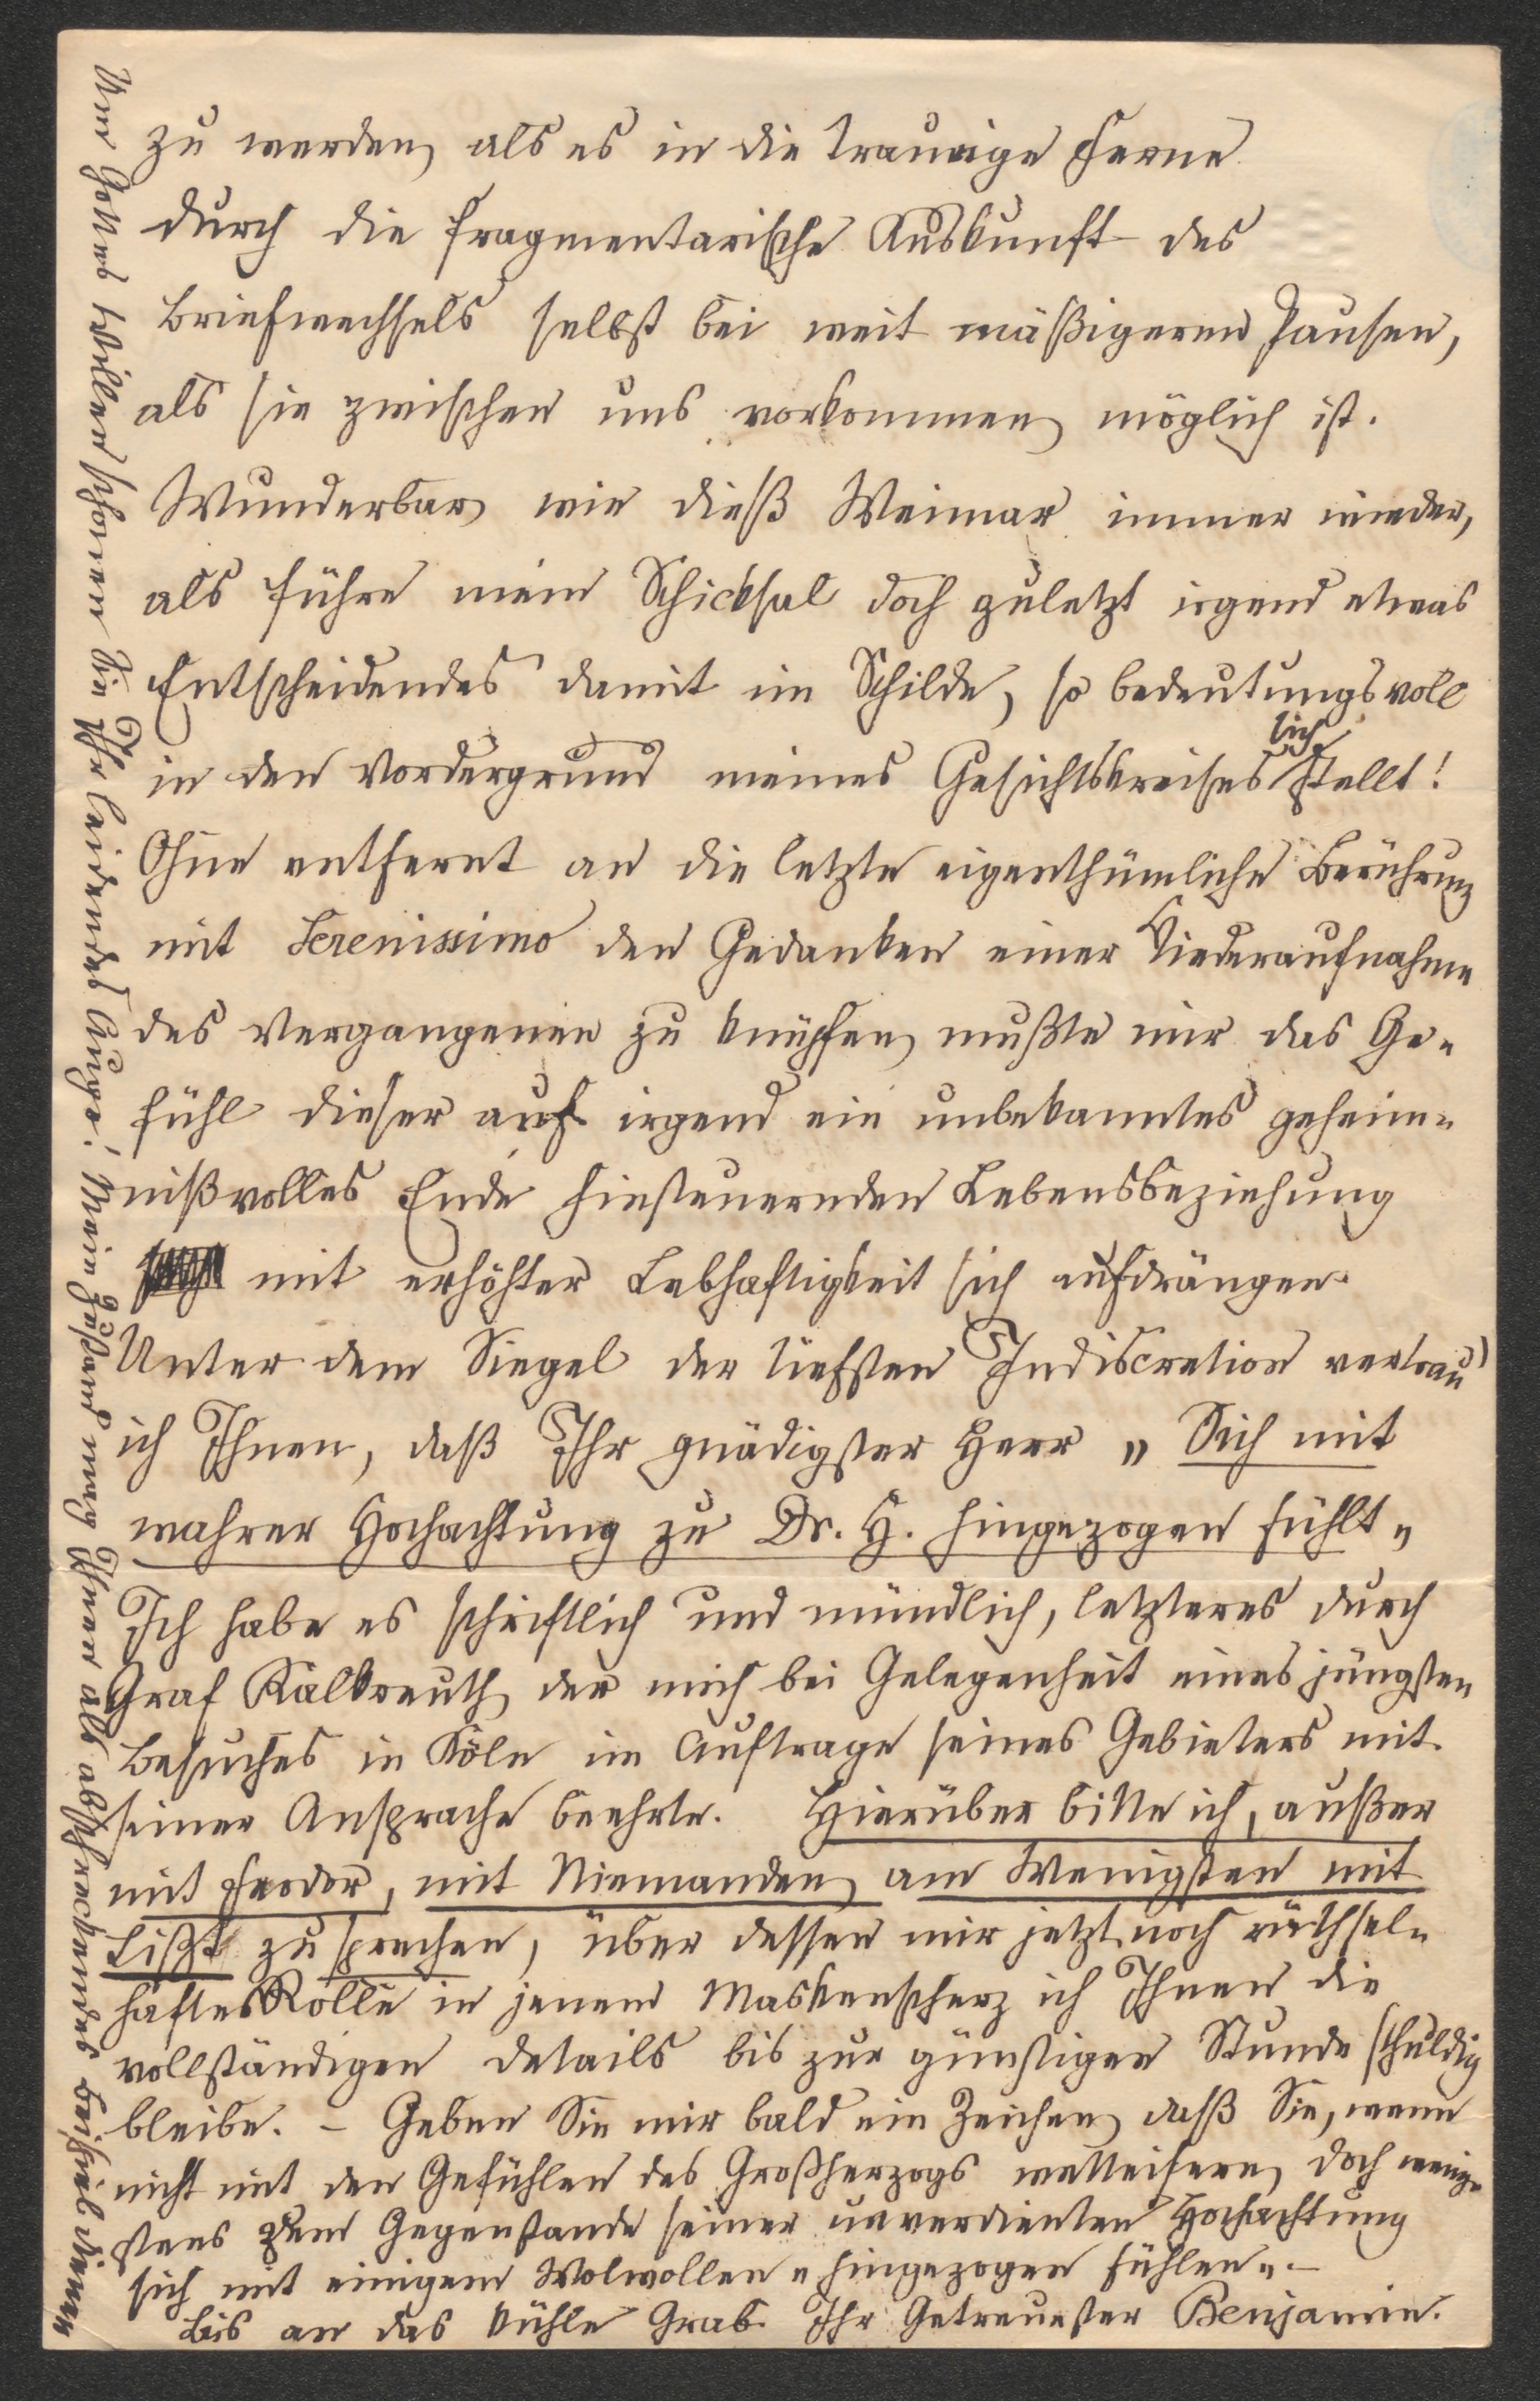 zu werden, als es in die traurige Ferne
durch die fragmentarische Auskunft des
Briefwechsels selbst bei weit mäßigeren Pausen,
als sie zwischen uns vorkommen, möglich ist.
Wunderbar, wie dieß Weimar immer wieder,
als führe mein Schicksal doch zuletzt irgend etwas
Entscheidendes damit im Schilde, so bedeutungsvoll
in den Vordergrund meines Gesichtskreises sich stellt!
Ohne entfernt an die letzte eigenthümliche Berührung
mit Serenissimo den Gedanken einer Wiederaufnahme
des Vergangenen zu knüpfen, mußte mir das Ge-
fühl dieser auf irgend ein unbekanntes geheim-
nißvolles Ende hinsteuernden Lebensbeziehung
mit erhöhter Lebhaftigkeit sich aufdrängen.
Unter dem Siegel der tiefsten Indiscretion vertrau'
ich Ihnen, daß Ihr gnädigster Herr „Sich mit
wahrer Hochachtung zu Dr. H. hingezogen fühlt"
Ich habe es schriftlich und mündlich, letzteres durch
Graf Kalkreuth, der mich bei Gelegenheit eines jüngsten
Besuches in Köln im Auftrage seines Gebieters mit
seiner Ansprache beehrte. Hierüber bitte ich, außer
mit Feodor, mit Niemanden, am Wenigsten mit
Liszt zu sprechen, über dessen mir jetzt noch räthsel-
hafte Rolle in jenem Maskenscherz ich Ihnen die
vollständigen Details bis zur günstigen Stunde schuldig
bleibe. – Geben Sie mir bald ein Zeichen, daß Sie, wenn
nicht mit den Gefühlen des Großherzogs wetteifern, doch wenig-
stens zum Gegenstande seiner unverdienten Hochachtung
sich mit einigem Wolwollen „hingezogen fühlen". –
Bis an das kühle Grab Ihr Getreuester Benjamin.
Um Gottes Willen schonen Sie Ihr leidendes Auge! Mein Zustand mag Ihnen als abschreckendes Beispiel dienen